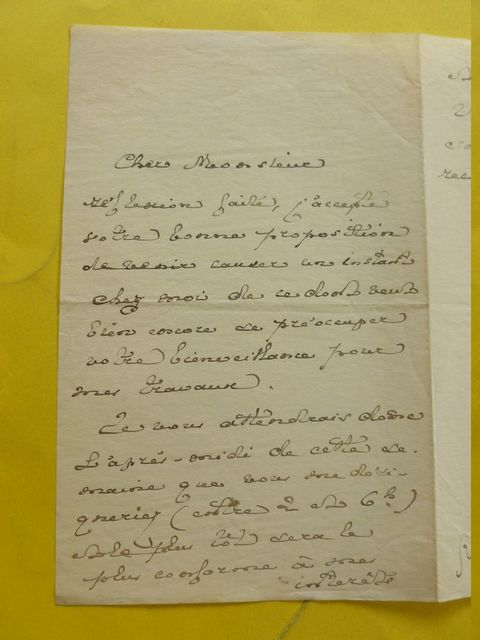 Cher Monsieur
réflexion faite, j'accepte
votre bonne proposition
de venir causer un instant
chez moi de ce dont veut
bien encore se préoccuper
votre bienveillance pour
mes travaux.
Je vous attendrais donc
l'après-midi de cette se-
maine que vous me dési-
gneriez (entre 2 et 6h)
et le plus tôt sera le
plus conforme à mes
intérêts